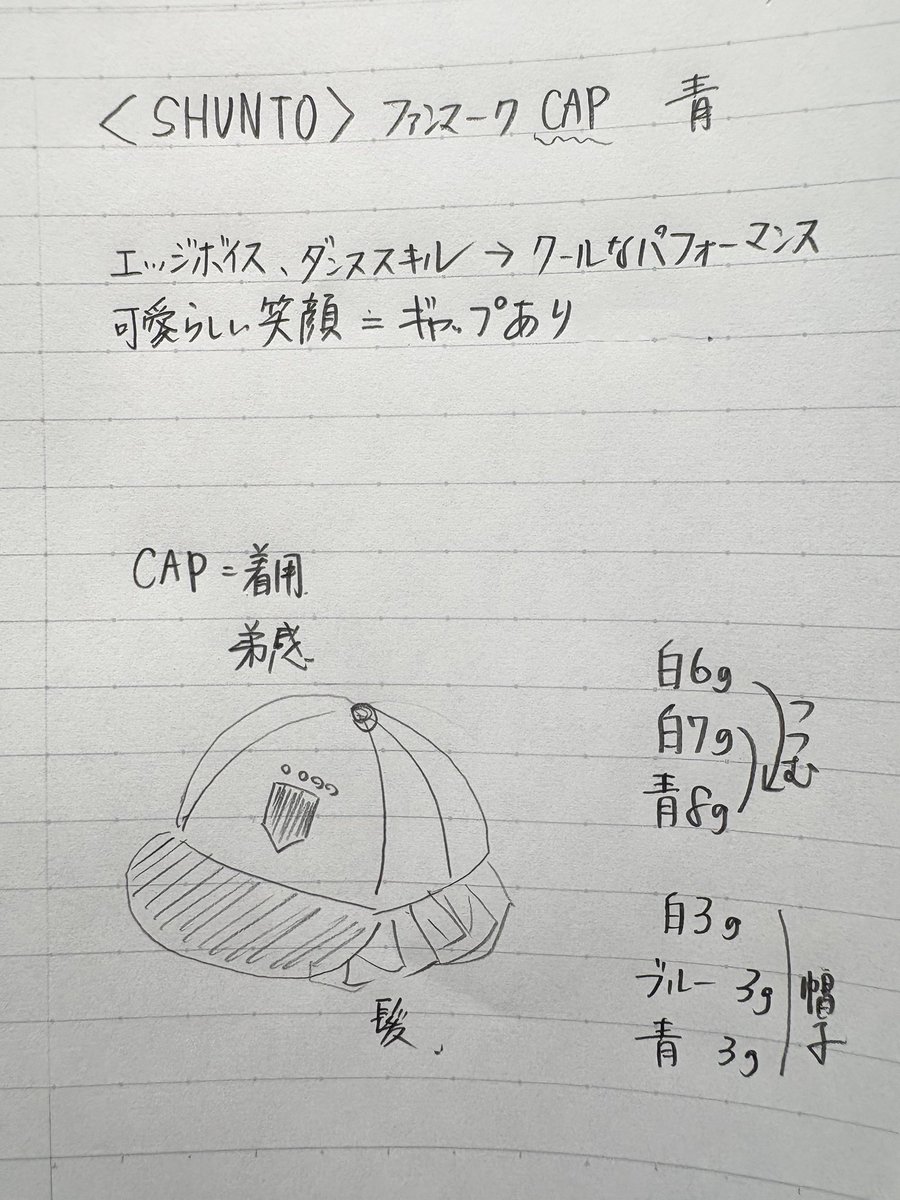 〈SHUNTO〉ファンマーク CAP 青
エッジボイス、ダンススキル→クールなパフォーマンス
可愛らしい笑顔≒ギャップあり
CAP=着用
弟感
白6g
白7g
青8g
つつむ
白3g
ブルー 3g
青 3g
帽子
髪